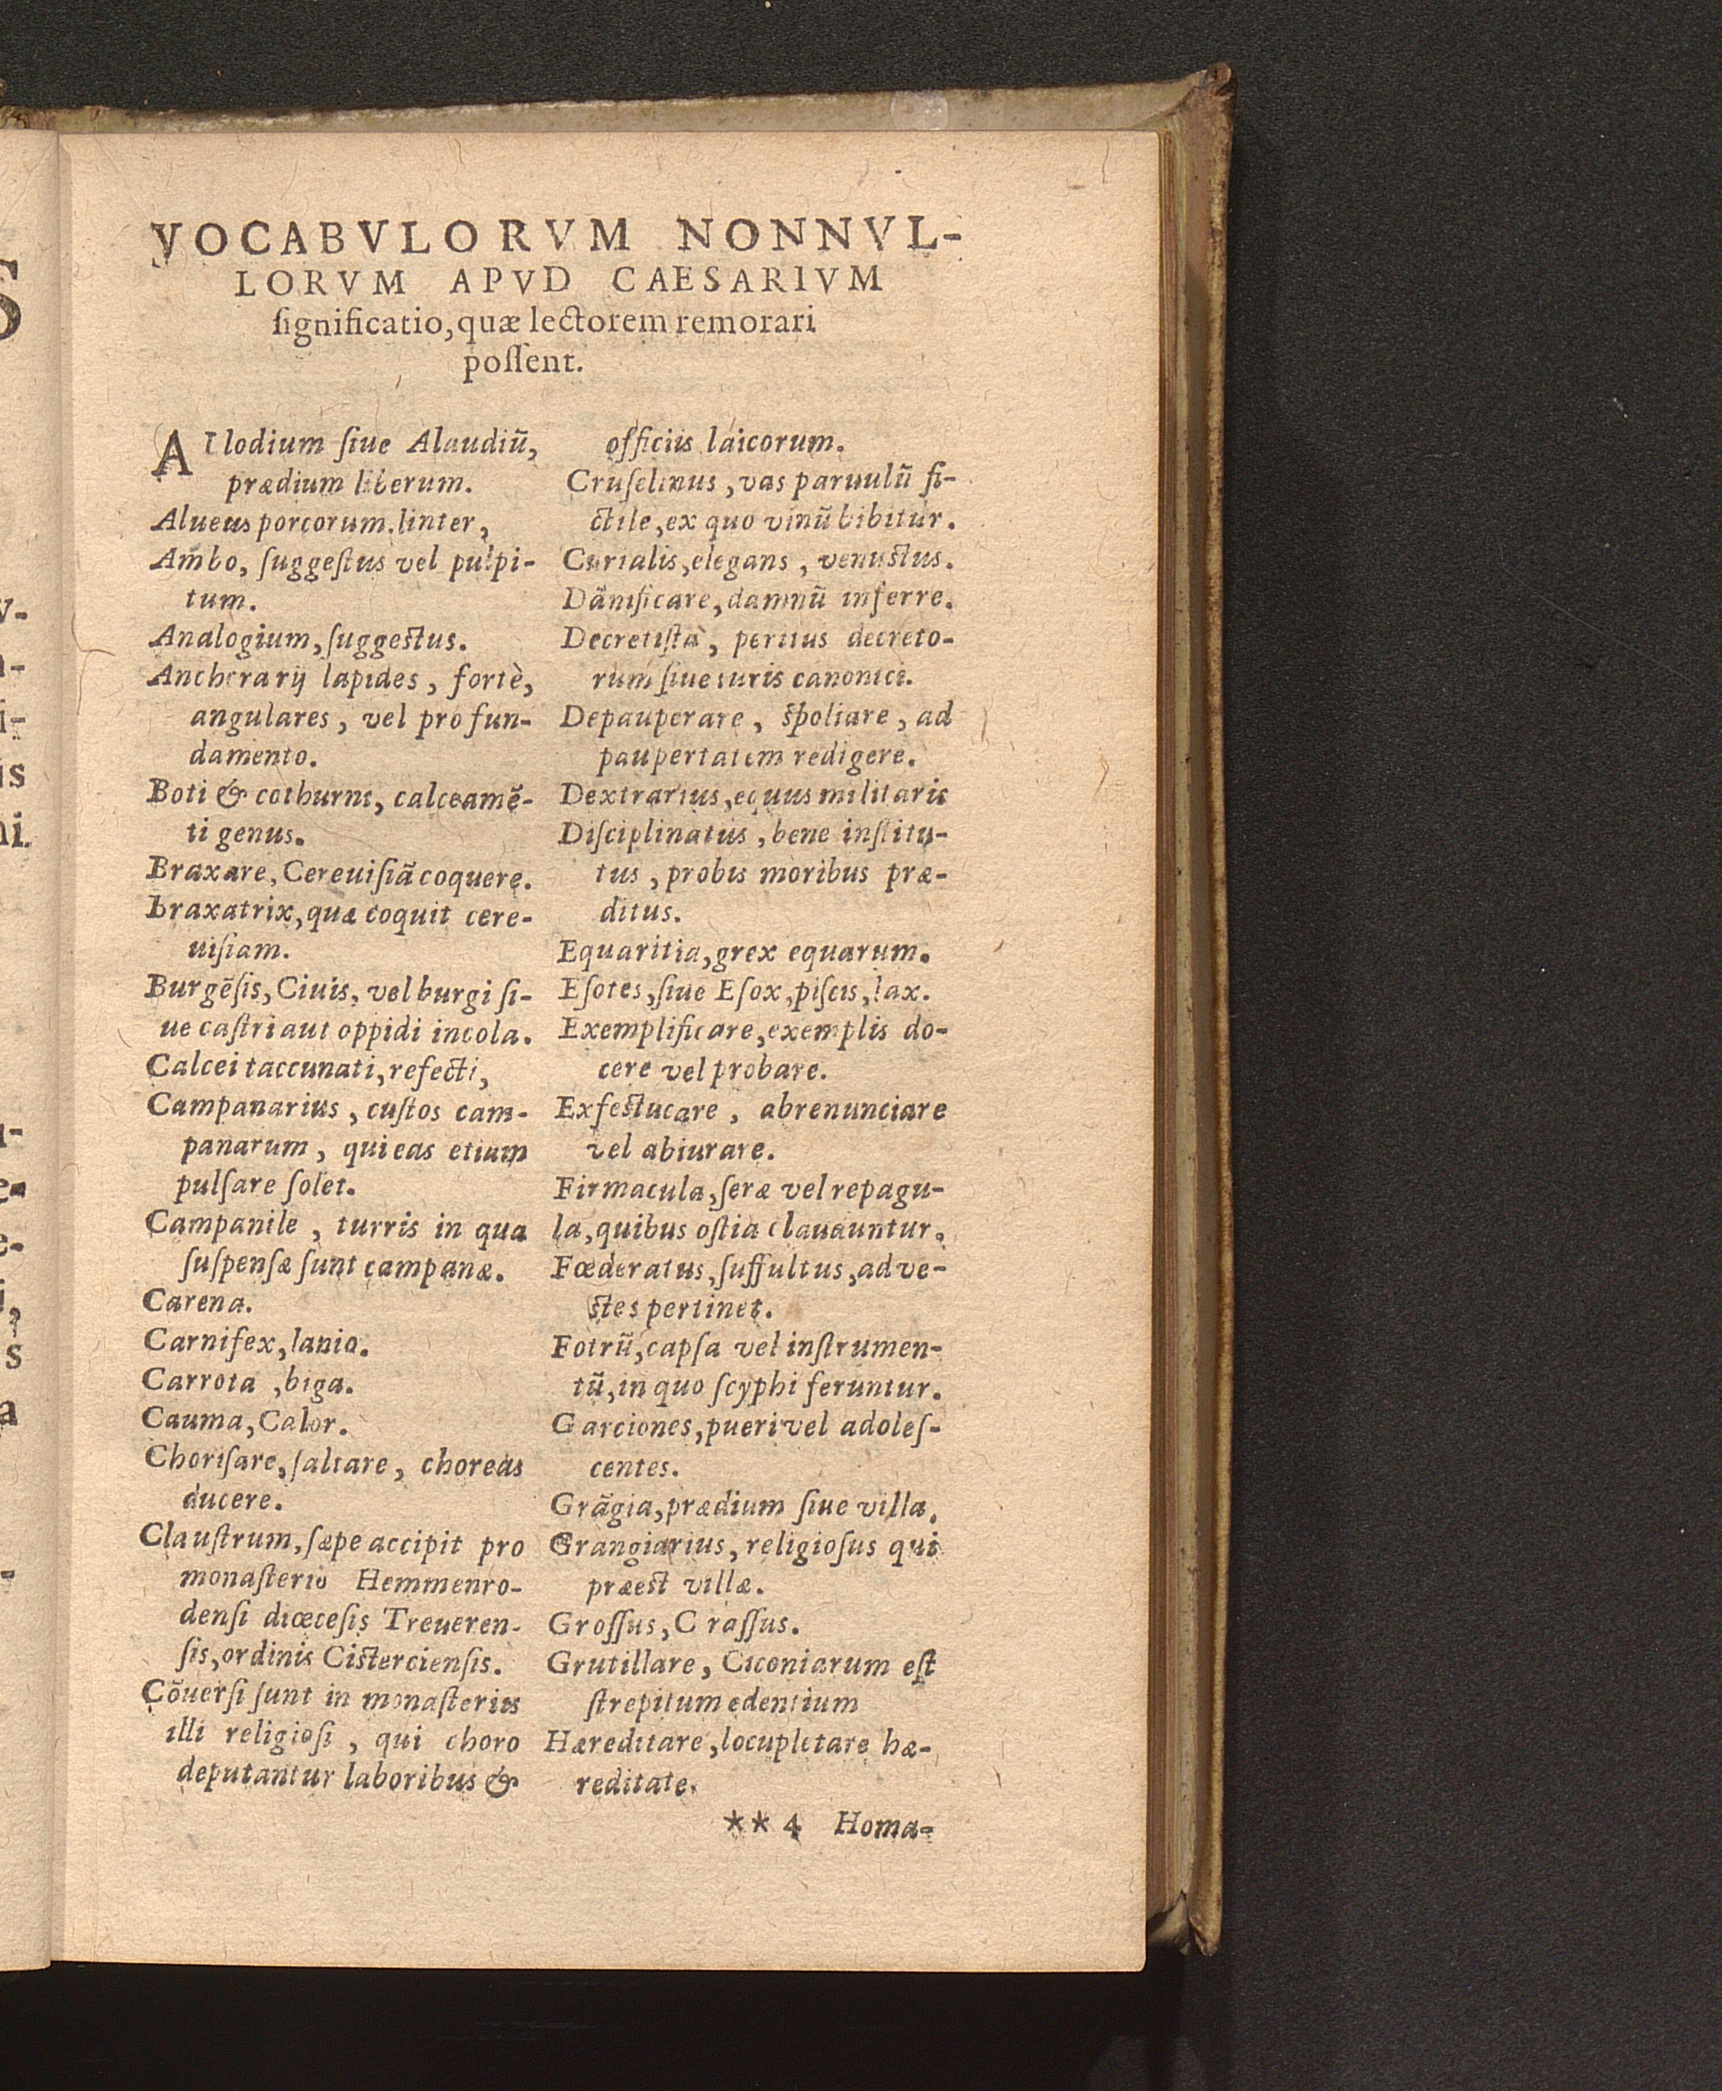 VOCABVLORVM NONNVL-
LORVM APVD CAESARIVM
ſignificatio, quæ lectorem remorari
poſſent.
Allodium ſiue Alaudiũ,
prædium liberum.
Alueus porcorum. linter,
Ambo, ſuggeſtus vel pulpi-
tum.
Analogium, ſuggeſtus.
Ancherarij lapides, fortè,
angulares, vel pro fun-
damento.
Boti & cothurni, calceamẽ-
ti genus.
Braxare, Cereuiſiã coquere.
Braxatrix, quæ coquit cere-
uiſiam.
Burgẽſis, Ciuis, vel burgi ſi-
ue caſtri aut oppidi incola.
Calcei taccunati, refecti,
Campanarius, cuſtos cam-
panarum, qui eas etiam
pulſare ſolet.
Campanile, turris in qua
ſuſpenſæ ſunt campanæ.
Carena.
Carnifex, lanio.
Carrota, biga.
Cauma, Calor.
Choriſare, ſaltare, choreas
ducere.
Clauſtrum, ſæpe accipit pro
monaſterio Hemmenro-
denſi diœceſis Treueren-
ſis, ordinis Ciſtercienſis.
Cõuerſi ſunt in monaſteriis
illi religioſi, qui choro
deputantur laboribus &
officiis laicorum.
Cruſelinus, vas paruulũ fi-
ctile, ex quo vinũ bibitur.
Curialis, elegans, venuſtus.
Dãnificare, damnũ inferre.
Decretiſta, peritus decreto-
rum ſiue iuris canonici.
Depauperare, ſpoliare, ad
paupertatem redigere.
Dextrarius, equus militaris
Diſciplinatus, bene inſtitu-
tus, probis moribus præ-
ditus.
Equaritia, grex equarum.
Eſotes, ſiue Eſox, piſcis, lax.
Exemplificare, exemplis do-
cere vel probare.
Exfeſtucare, abrenunciare
vel abiurare.
Firmacula, ſeræ vel repagu-
la, quibus oſtia clauauntur.
Fœderatus, ſuffultus, ad ve-
ſtes pertinet.
Fotrũ, capſa vel inſtrumen-
tũ, in quo ſcyphi feruntur.
Garciones, pueri vel adoleſ-
centes.
Grãgia, prædium ſiue villa.
Grangiarius, religioſus qui
præeſt villæ.
Groſſus, Craſſus.
Grutillare, Ciconiarum eſt
ſtrepitum edentium
Hæreditare, locupletare hæ-
reditate.
** 4 Homa-